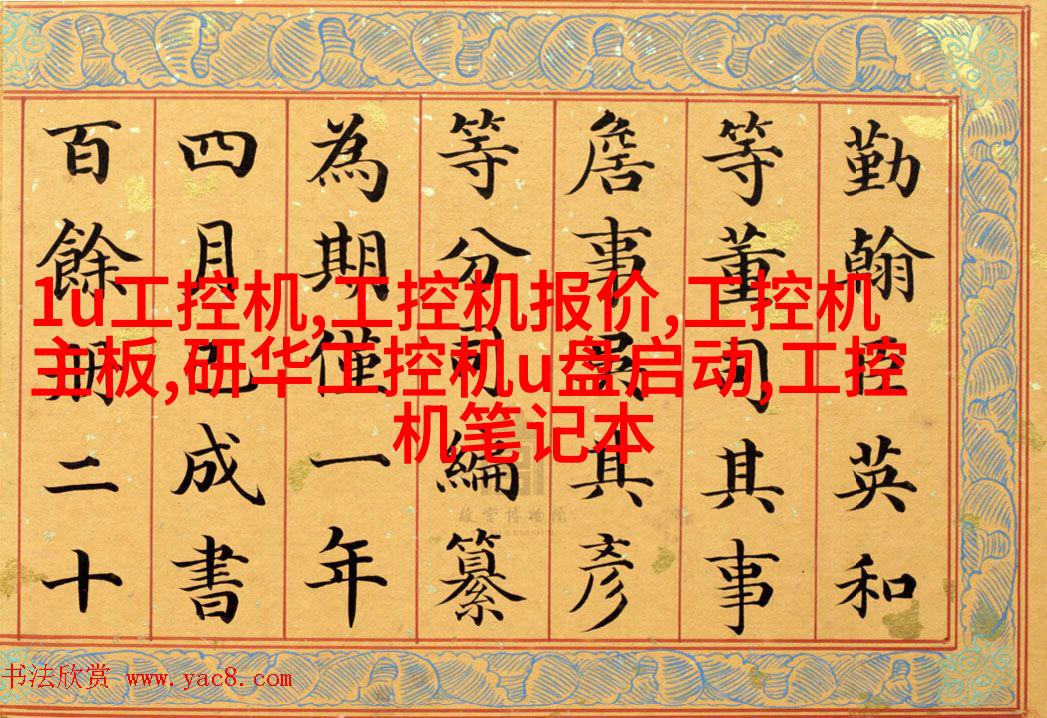 勤翰臣英和
等董司其事
詹事其彥
等分司編纂
為期僅一年
四月已成書
百餘冊二十
1u工控机,工控机报价,工控机
主板,研华工控机u盘启动,工控
机笔记本
故宫博物院
书法欣赏 www.yac8.com